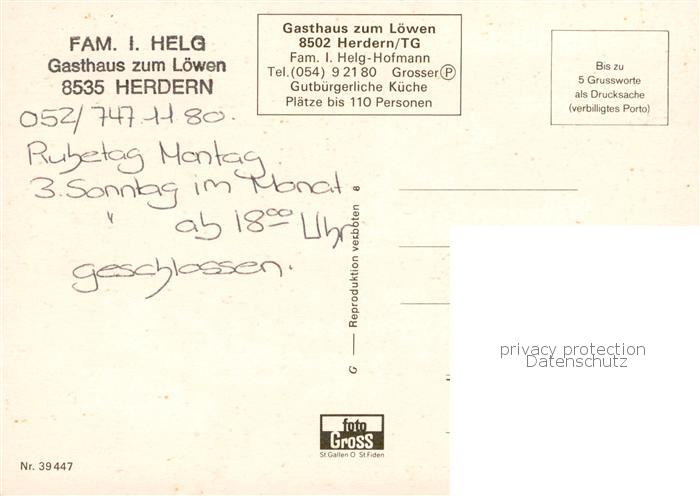 FAM. I. HELG
Gasthaus zum Löwen
8535 HERDERN
Gasthaus zum Löwen
8502 Herdern/TG
Fam. I. Helg-Hofmann
Tel. (054) 9 21 80 Grosser Ⓟ
Gutbürgerliche Küche
Plätze bis 110 Personen
Bis zu
5 Grussworte
als Drucksache
(verbilligtes Porto)
052/747.11 80.
Ruhetag Montag.
3. Sonntag im Monat
" ab 18⁰⁰ Uhr
geschlossen.
G — Reproduktion verboten 8
privacy protection
Datenschutz
foto
Gross
St. Gallen O St. Fiden
Nr. 39 447